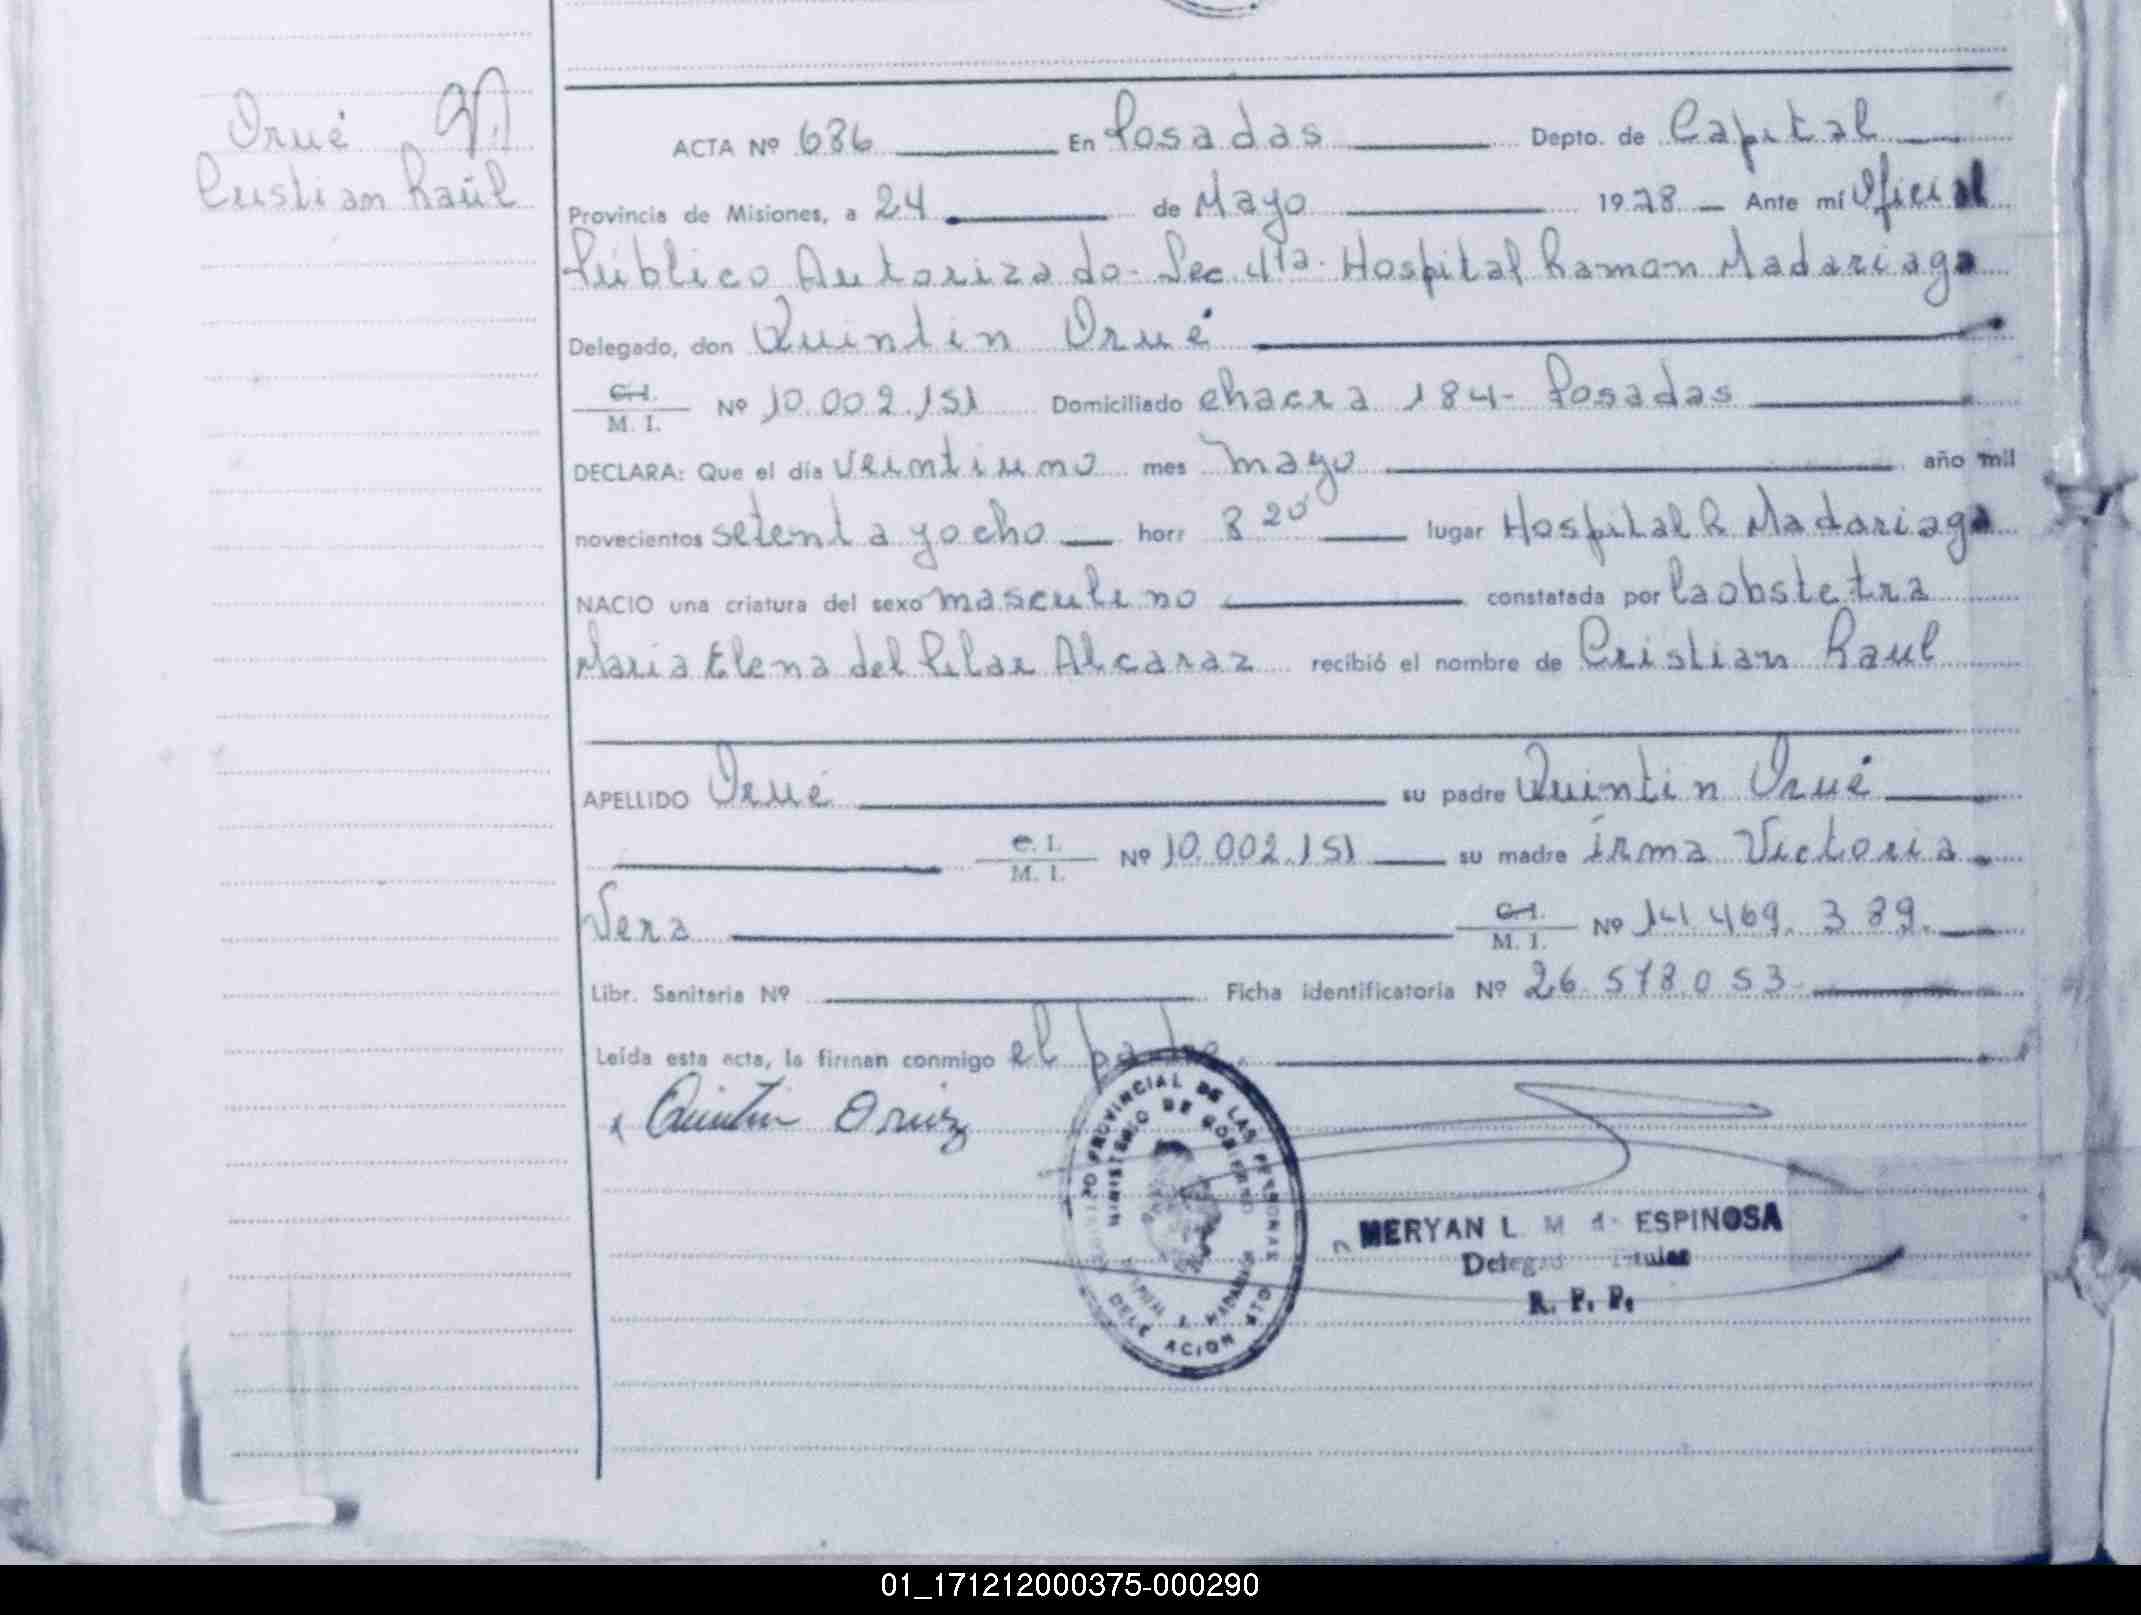 Orué
Cristian Raúl
ACTA Nº 686 En Posadas Depto. de Capital
Provincia de Misiones, a 24 de Mayo 1978 Ante mí Oficial
Público Autorizado- Sec 4ta. Hospital Ramon Madariaga
Delegado, don Quintin Orué
C.I.
M. I. Nº 10.002.151 Domiciliado chacra 184- Posadas
DECLARA: Que el día veintiuno mes mayo año mil
novecientos setenta y ocho horr 8 20 lugar Hospital R Madariaga
NACIO una criatura del sexo masculino constatada por la obstetra
Maria Elena del Pilar Alcaraz recibió el nombre de Cristian Raul
APELLIDO Orué su padre Quintin Orué
C. I.
M. I. Nº 10.002.151 su madre irma Victoria
Vera C.I.
M. I. Nº 14.469.389.
Libr. Sanitaria Nº Ficha identificatoria Nº 26.578.053
Leída esta acta, la firman conmigo el padre.
Quintin
PROVINCIAL DE LAS PERSONAS
MINISTERIO DE GOBIERNO
MERYAN L. M. d. ESPINOSA
Delegado Titular
R. P. P.
01_171212000375-000290